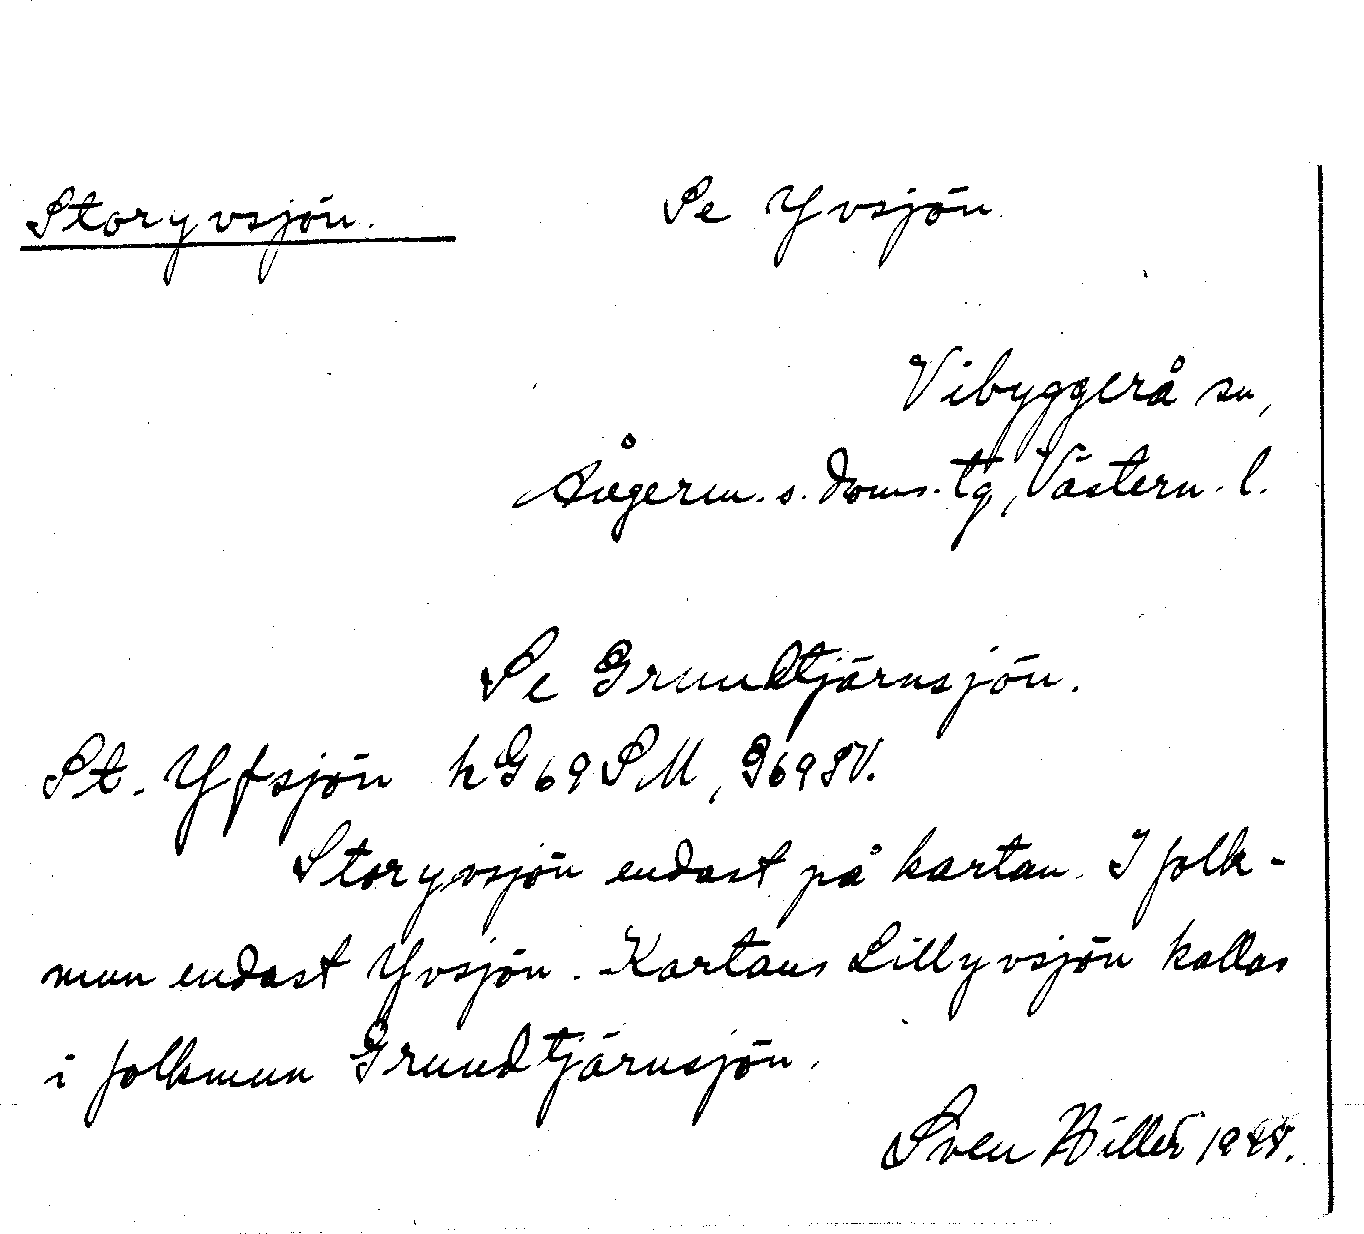 Storyvsjön. Se Yvsjön
Vibyggerå sn,
Ångerm. s. doms. tg, Västern. l.
Se Grundtjärnsjön.
St. Yfsjön h G69 SM, G69 SV.
Storyvsjön endast på kartan. I folk-
mun endast Yvsjön. Kartans Lillyvsjön kallas
i folkmun Grundtjärnsjön.
Sven